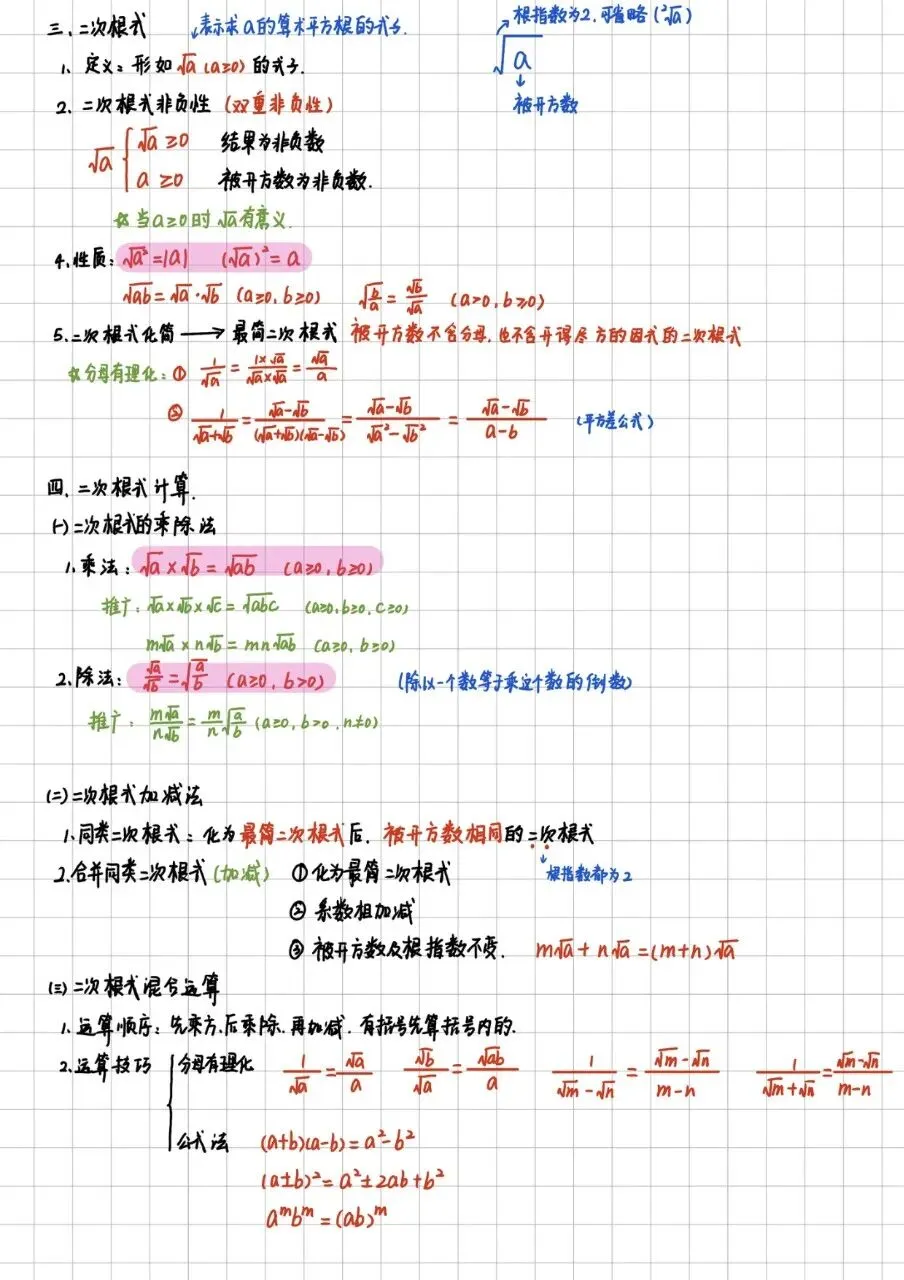 三、二次根式 ↓表示求a的算术平方根的式子.
根指数为2,可省略(²√a)
√a
被开方数
1、定义：形如√a (a≥0) 的式子.
2、二次根式非负性 (双重非负性)
√a { √a ≥0 结果为非负数
a ≥0 被开方数为非负数.
☆当a≥0时 √a有意义.
4、性质：√a²=|a| (√a)²=a
√ab=√a·√b (a≥0,b≥0) √(b/a)=√b/√a (a>0,b≥0)
5、二次根式化简 → 最简二次根式 被开方数不含分母,也不含开得尽方的因式的二次根式
☆分母有理化：① 1/√a = (1×√a)/(√a×√a) = √a/a
② 1/(√a+√b) = (√a-√b)/((√a+√b)(√a-√b)) = (√a-√b)/(√a²-√b²) = (√a-√b)/(a-b) (平方差公式)
四、二次根式计算.
(一)二次根式的乘除法
1、乘法：√a×√b=√ab (a≥0,b≥0)
推广：√a×√b×√c=√abc (a≥0,b≥0,c≥0)
m√a×n√b=mn√ab (a≥0,b≥0)
2、除法：√a/√b=√(a/b) (a≥0,b>0) (除以一个数等于乘这个数的倒数)
推广：m√a/n√b=m/n√(a/b) (a≥0,b>0,n≠0)
(二)二次根式加减法
1、同类二次根式：化为最简二次根式后,被开方数相同的二次根式
↓根指数都为2
2、合并同类二次根式(加减) ①化为最简二次根式
② 系数相加减
③ 被开方数及根指数不变. m√a+n√a=(m+n)√a
(三)二次根式混合运算
1、运算顺序：先乘方,后乘除,再加减.有括号先算括号内的.
2、运算技巧 { 分母有理化 1/√a=√a/a √b/√a=√ab/a 1/(√m-√n)=(√m-√n)/(m-n) 1/(√m+√n)=(√m-√n)/(m-n)
公式法 (a+b)(a-b)=a²-b²
(a±b)²=a²±2ab+b²
aᵐbᵐ=(ab)ᵐ